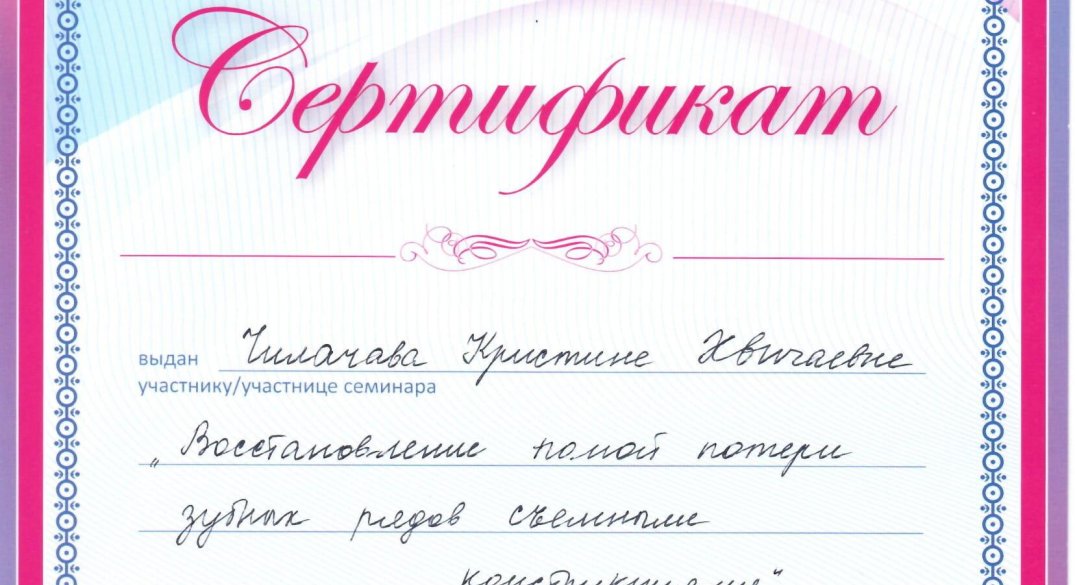 Сертификат
выдан Чилачава Кристине Хвичаевне
участнику/участнице семинара
„Восстановление полной потери
зубных рядов съемными
конструкциями"